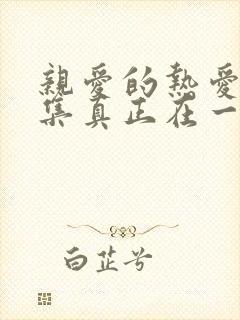 親愛的熱愛
集真正在一
白芷兮